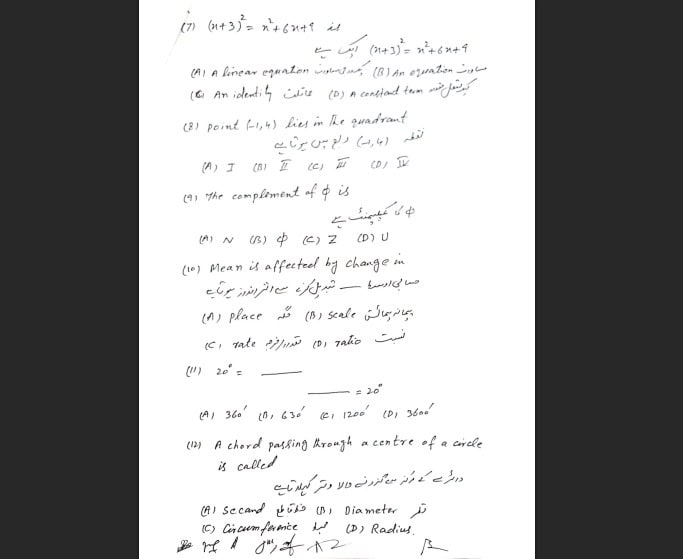 (7) (x+3)² = x²+6x+9 is
(x+3)² = x²+6x+9 ایک ہے
(A) A linear equation یک درجی مساوات (B) An equation مساوات
(C) An identity مماثلت (D) A constant term
(8) point (-1,4) lies in the quadrant
نقطہ (-1,4) ربع میں ہوتا ہے
(A) I (B) II (C) III (D) IV
(9) The complement of ϕ is
ϕ کا کمپلیمنٹ ہے
(A) N (B) ϕ (C) Z (D) U
(10) Mean is affected by change in
حسابی اوسط — تبدیل کرنے سے اثر انداز ہوتا ہے
(A) place جگہ (B) scale پیمانہ پیمائش
(C) rate (D) ratio نسبت
(11) 20° = ____
____ = 20°
(A) 360′ (B) 630′ (C) 1200′ (D) 3600′
(12) A chord passing through a centre of a circle
is called
دائرے کے مرکز میں گزرنے والا وتر کہلاتا ہے
(A) Secand (B) Diameter قطر
(C) Circumference محیط (D) Radius.